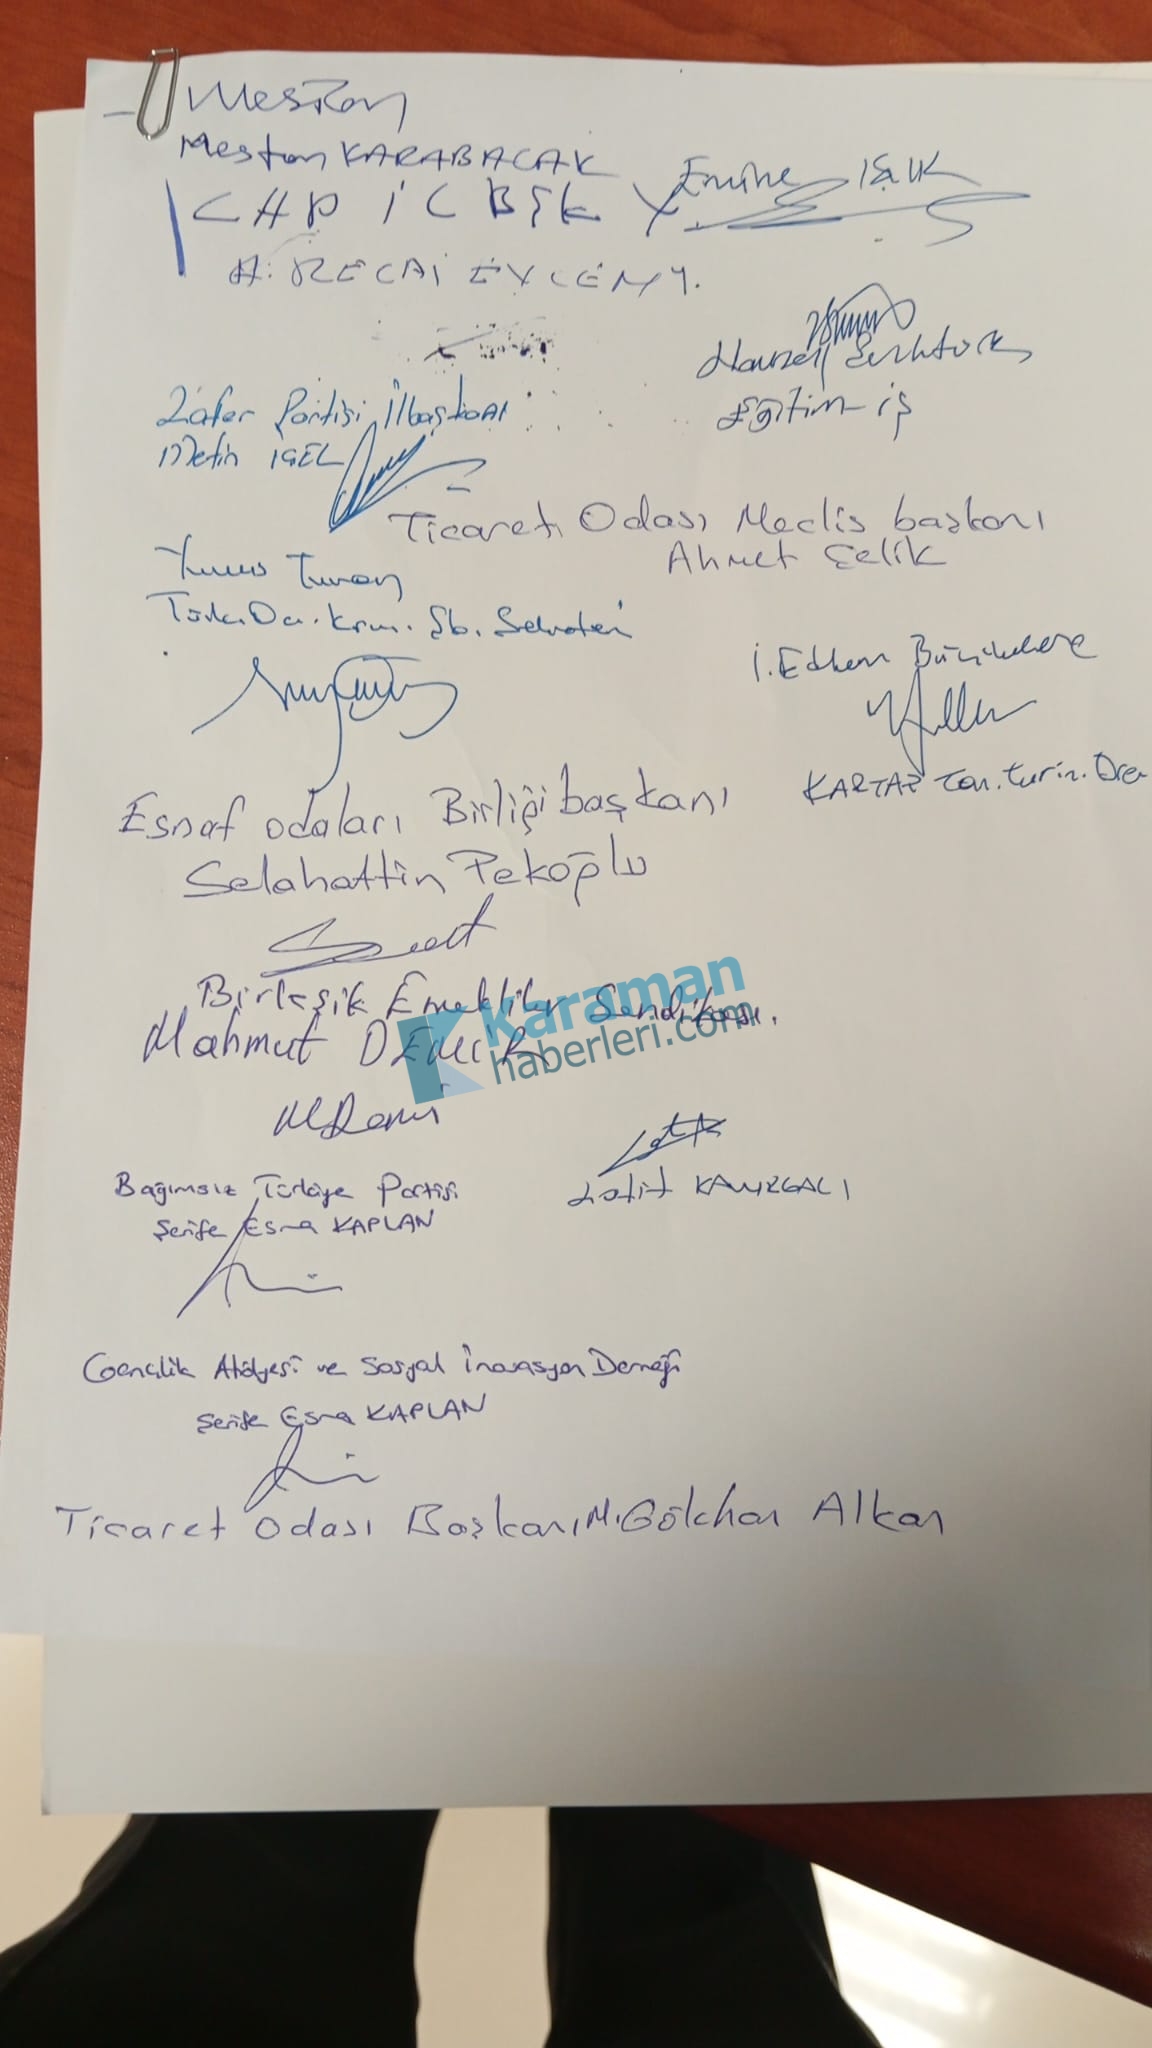 Meston
Meston KARABACAK
CHP İL BŞK
Emine IŞIK
A. RECAİ
Eğitim-iş
Zafer Partisi İlbaşkanı
Metin IGEL
Ticaret Odası Meclis başkanı
Ahmet Çelik
Yunus Turan
Türk. Da. Krm. Şb. Sekreteri
İ. Edhem
KARTAP Tan. Turiz. Der
Esnaf odaları Birliği başkanı
Selahattin Pekoğlu
Birleşik Emekliler Sendikası.
Mahmut DEMİR
MDemir
karaman
haberleri.com
Latif
Bağımsız Türkiye Partisi
Şerife Esma KAPLAN
Gençlik Atölyesi ve Sosyal İnovasyon Derneği
Şerife Esma KAPLAN
Ticaret Odası Başkanı M. Gökhan Alkan